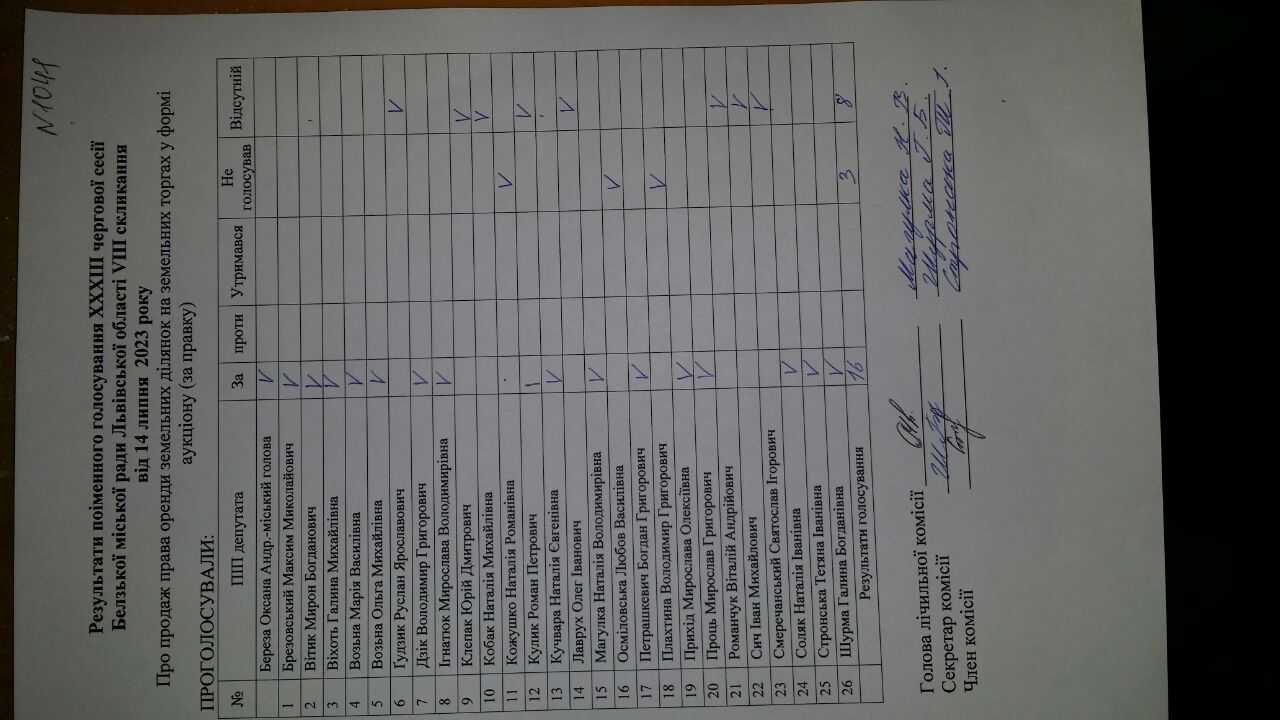 N1044
Результати поіменного голосування XXXIII чергової сесії
Белзької міської ради Львівської області VIII скликання
від 14 липня 2023 року
Про продаж права оренди земельних ділянок на земельних торгах у формі
аукціону (за правку)
ПРОГОЛОСУВАЛИ:
№ ПІП депутата За проти Утримався Не голосував Відсутній
Береза Оксана Андр.-міський голова V
1 Брезовський Максим Миколайович V
2 Вітик Мирон Богданович V
3 Віхоть Галина Михайлівна V
4 Возьна Марія Василівна V
5 Возьна Ольга Михайлівна V
6 Гудзик Руслан Ярославович V
7 Дзік Володимир Григорович V
8 Ігнатюк Мирослава Володимирівна V
9 Клепак Юрій Дмитрович V
10 Кобак Наталія Михайлівна V
11 Кожушко Наталія Романівна V
12 Кулик Роман Петрович V
13 Кучвара Наталія Євгенівна V
14 Лаврух Олег Іванович V
15 Магулка Наталія Володимирівна V
16 Осміловська Любов Василівна V
17 Петрашкевич Богдан Григорович V
18 Плахтина Володимир Григорович V
19 Прихід Мирослава Олексіївна V
20 Проць Мирослав Григорович V
21 Романчук Віталій Андрійович V
22 Сич Іван Михайлович V
23 Смеречанський Святослав Ігорович V
24 Соляк Наталія Іванівна V
25 Стронська Тетяна Іванівна V
26 Шурма Галина Богданівна V
Результати голосування 16 3 8
Голова лічильної комісії Магулка Н. В.
Секретар комісії Шурма Г. Б.
Член комісії Стронська Т. І.